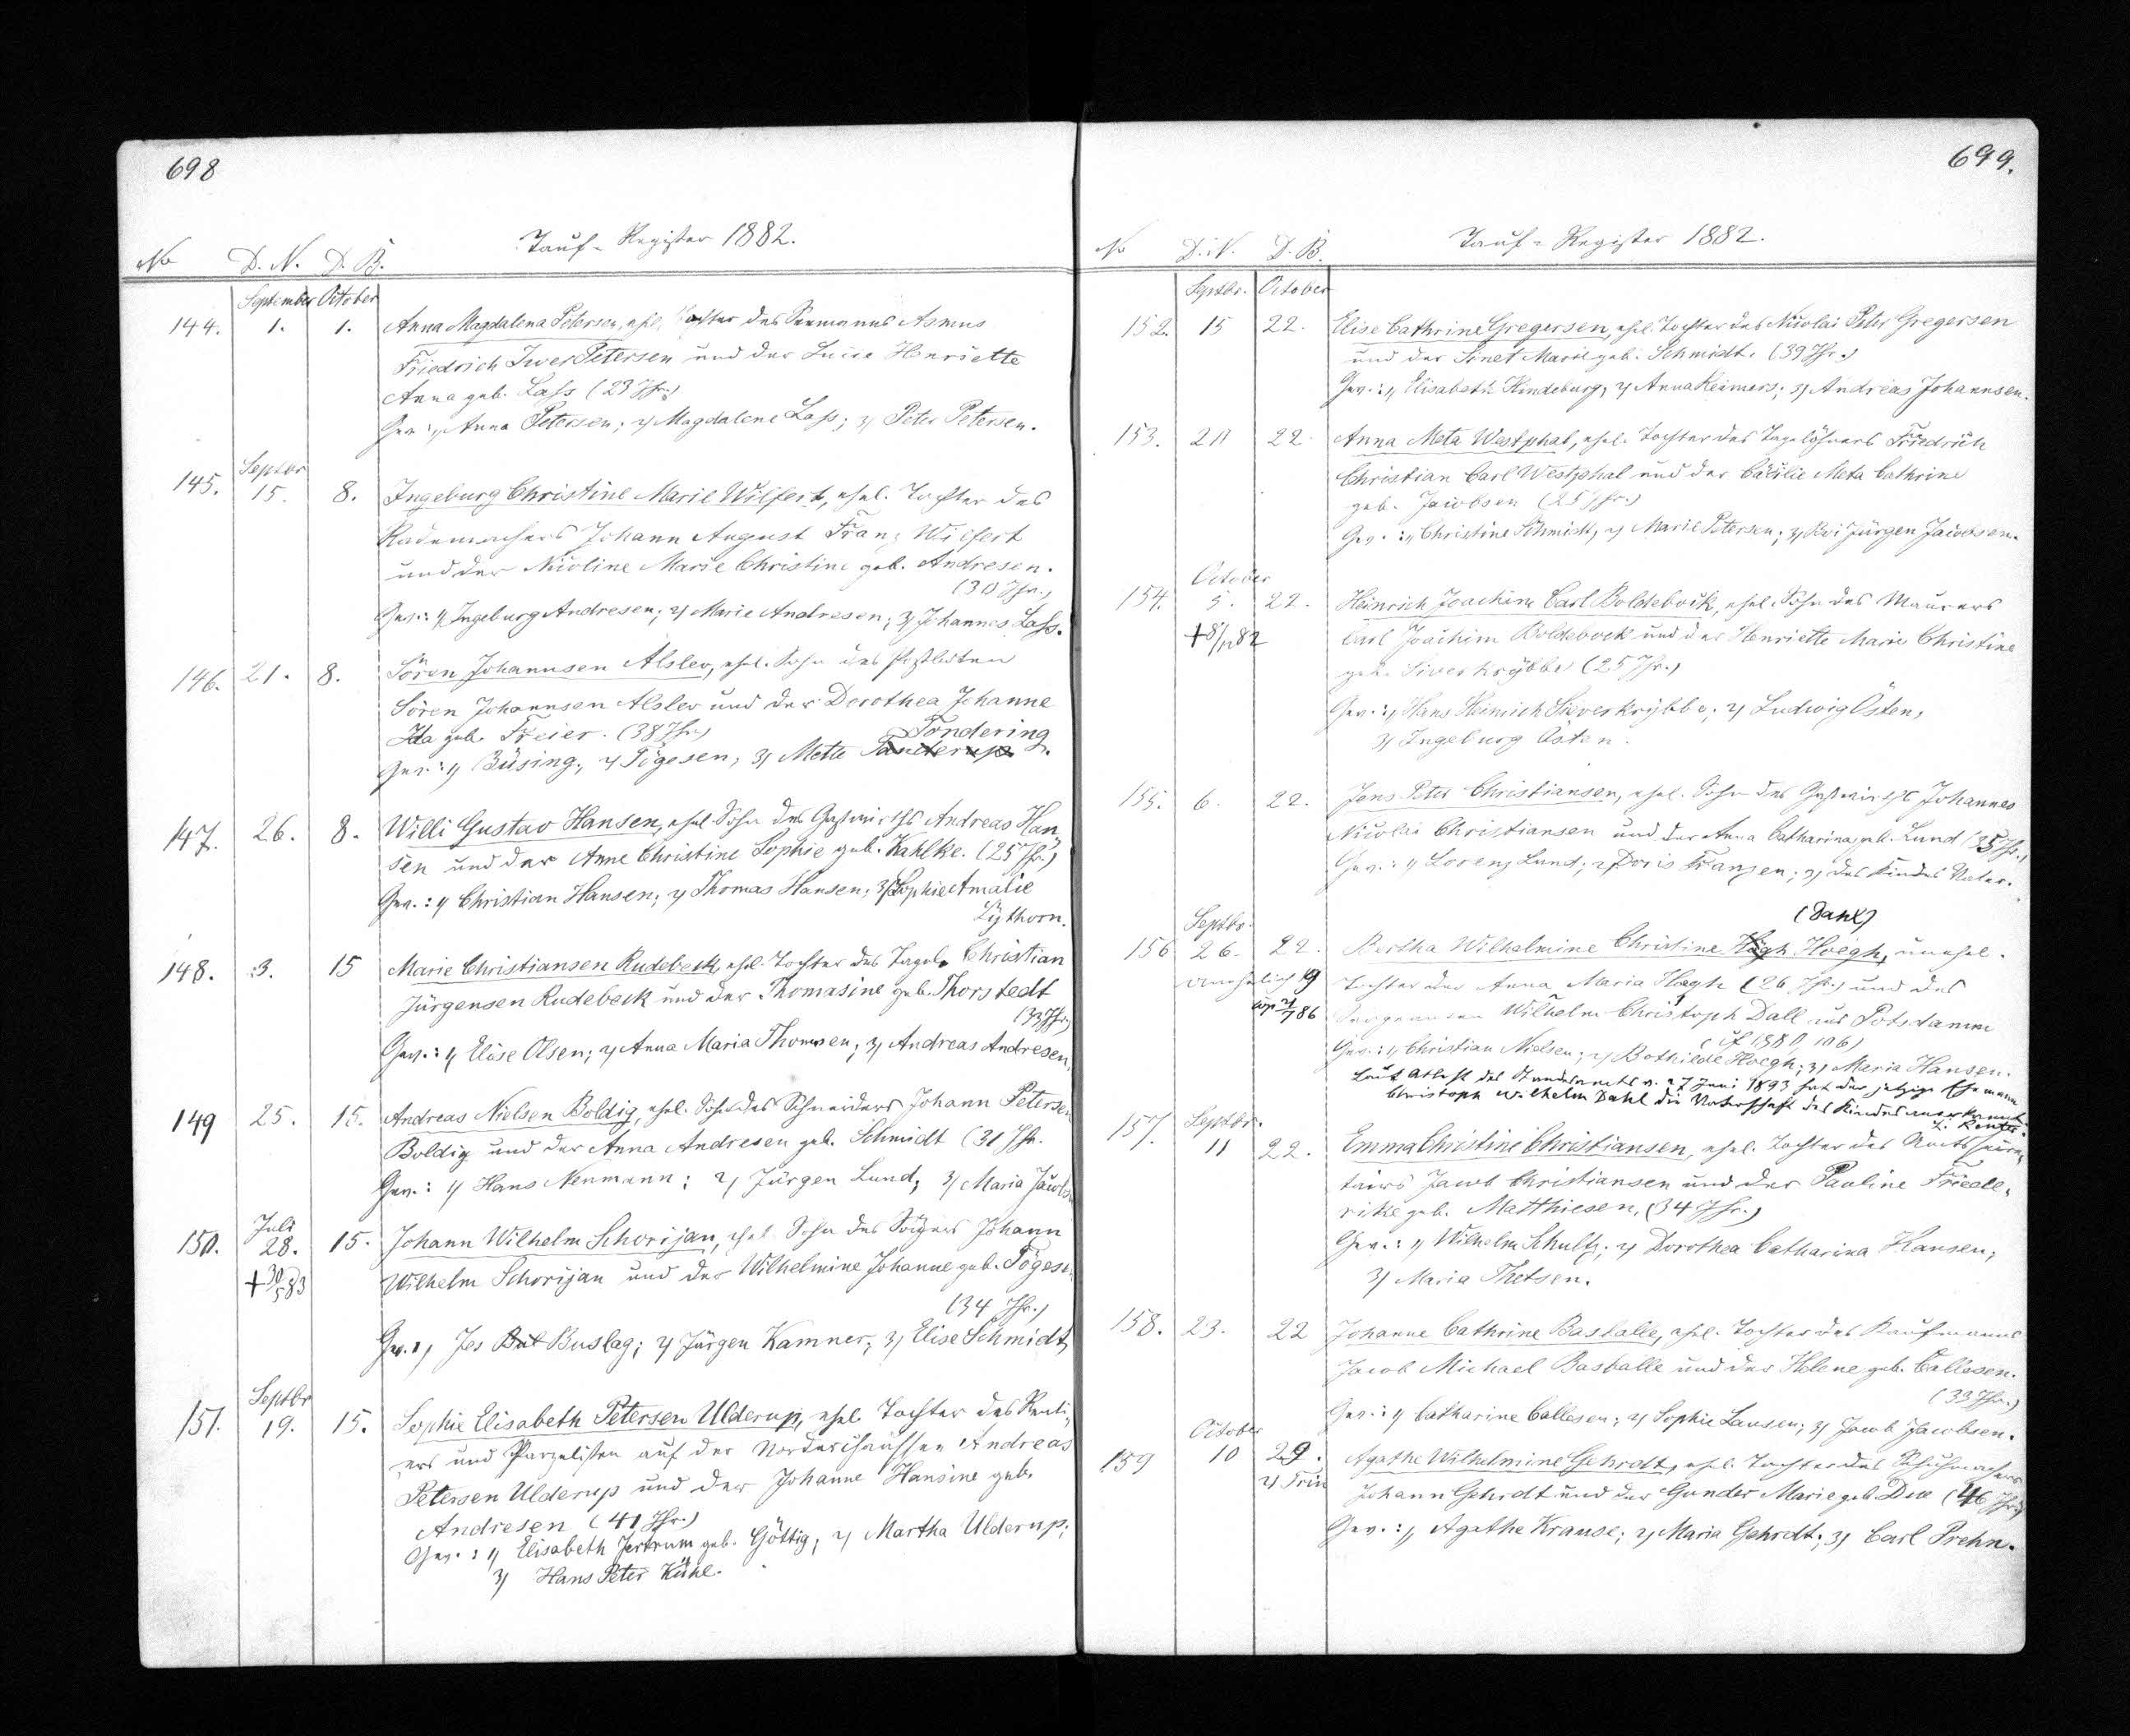 698
Tauf-Register 1882.
No D. N. D. B.
September October
144. 1. 1. Anna Magdalena Petersen, ehel. Tochter des Seemanns Asmus
Friedrich Iwer Petersen und der Lucie Henriette
Anna geb. Lass (23 Jhr.)
Gev: 1, Anna Petersen; 2, Magdalene Lass; 3, Peter Petersen.
Septbr
145. 15. 8. Ingeburg Christine Marie Wilfert, ehel. Tochter des
Rademachers Johann August Franz Wilfert
und der Nicoline Marie Christine geb. Andresen.
(30 Jhr.)
Gev.: 1, Ingeburg Andresen; 2, Marie Andresen; 3, Johannes Lass.
146. 21. 8. Sören Johannsen Alslev, ehel. Sohn des Postboten
Sören Johannsen Alslev und der Dorothea Johanne
Ida geb. Freier. (38 Jhr.) Tondering
Gev.: 1, Büsing; 2, Tögesen; 3, Mette Tanderup.
147. 26. 8. Willi Gustav Hansen, ehel. Sohn des Gastwirths Andreas Han
sen und der Anne Christine Sophie geb. Kahlke. (25 Jhr.)
Gev.: 1, Christian Hansen; 2, Thomas Hansen; 3, Sophie Amalie
Lythorn.
148. 3. 15 Marie Christiansen Rudebeck, ehel. Tochter des Tagel. Christian
Jürgensen Rudebeck und der Thomasine geb. Thorstedt
(33 Jhr.)
Gev.: 1, Elise Olsen; 2, Anna Maria Thomsen; 3, Andreas Andresen.
149 25. 15. Andreas Nielsen Boldig, ehel. Sohn des Schneiders Johann Petersen
Boldig und der Anna Andresen geb. Schmidt (31 Jhr.
Gev.: 1, Hans Neumann; 2, Jürgen Lund; 3, Maria Jacobsen
Juli
150. 28. 15. Johann Wilhelm Schorijan, ehel. Sohn des Johann
+ 30/5 83 Wilhelm Schorijan und der Wilhelmine Johanne geb. Tögesen
(34 Jhr.)
Gev. 1, Jes But Buslag; 2, Jürgen Kamner; 3, Elise Schmidt
Septbr
151. 19. 15. Sophie Elisabeth Petersen Ulderup, ehel. Tochter des Renti-
ers und Parzelisten auf der Andreas
Petersen Ulderup und der Johanne Hansine geb.
Andresen (41 Jhr.)
Gev.: 1, Elisabeth Jertrum geb. Göttig; 2, Martha Ulderup;
3, Hans Peter Kühl.
699.
Tauf-Register 1882.
No D. N. D. B.
Septbr. October
152. 15 22. Elise Cathrine Gregersen, ehel. Tochter des Nicolai Peter Gregersen
und der Sinet Marie geb. Schmidt. (39 Jhr.)
Gev.: 1, Elisabeth Hindeburg; 2, Anna Reimers; 3, Andreas Johannsen.
153. 20 22. Anna Meta Westphal, ehel. Tochter des Tagelöhners Friedrich
Christian Carl Westphal und der Cäcilie Meta Cathrine
geb. Jacobsen (25 Jhr.)
Gev.: 1, Christine Schmidt; 2, Marie Petersen; 3, Jürgen Jacobsen.
October
154. 5. 22. Heinrich Joachim Carl Boldebock, ehel. Sohn des Maurers
+ 8/12 82 Carl Joachim Boldebock und der Henriette Marie Christine
geb. Siverkrybbe (25 Jhr.)
Gev.: 1, Hans Heinrich Sieverkrybbe; 2, Ludwig Östen,
3, Ingeburg Östen.
155. 6. 22. Jens Peter Christiansen, ehel. Sohn des Gastwirths Johannes
Nicolai Christiansen und der Anna Catharina geb. Lund (35 Jhr.)
Gev.: 1, Lorenz Lund; 2, Doris Franzen; 3, des Kindes Vater.
(Dahl)
Septbr.
156 26. 22. Bertha Wilhelmine Christine Högh Hoegh, unehel.
unehelich 19 Tochter der Anna Maria Hoegh (26 Jhr.) und des
86 Sergeanten Wilhelm Christoph Dall aus Potsdamm
(cf 1880, 106)
Gev.: 1, Christian Nielsen; 2, Bothilde Hoegh; 3, Maria Hansen.
Laut Attest des Standesamts v. 27 Juni 1893 hat der jetzige Ehemann
Christoph Wilhelm Dahl die Vaterschaft des Kindes anerkannt.
Septbr.
157. 11 22. Emma Christine Christiansen, ehel. Tochter des Amtssecre-
tairs Jacob Christiansen und der Pauline Friede-
rike geb. Matthiesen. (34 Jhr.)
Gev.: 1, Wilhelm Schultz; 2, Dorothea Catharina Hansen;
3, Maria Thetsen.
158. 23. 22 Johanne Cathrine Basballe, ehel. Tochter des Kaufmanns
Jacob Michael Basballe und der Helene geb. Callesen.
(33 Jhr.)
Gev.: 1, Catharine Callesen; 2, Sophie Lausen; 3, Jacob Jacobsen.
October
159 10 29. Agathe Wilhelmine Gehrdt, ehel. Tochter des Schuhmachers
Johann Gehrdt und der Gunder Marie geb. Due (46 Jhr.)
Gev.: 1, Agathe Krause; 2, Maria Gehrdt; 3, Carl Prehn.